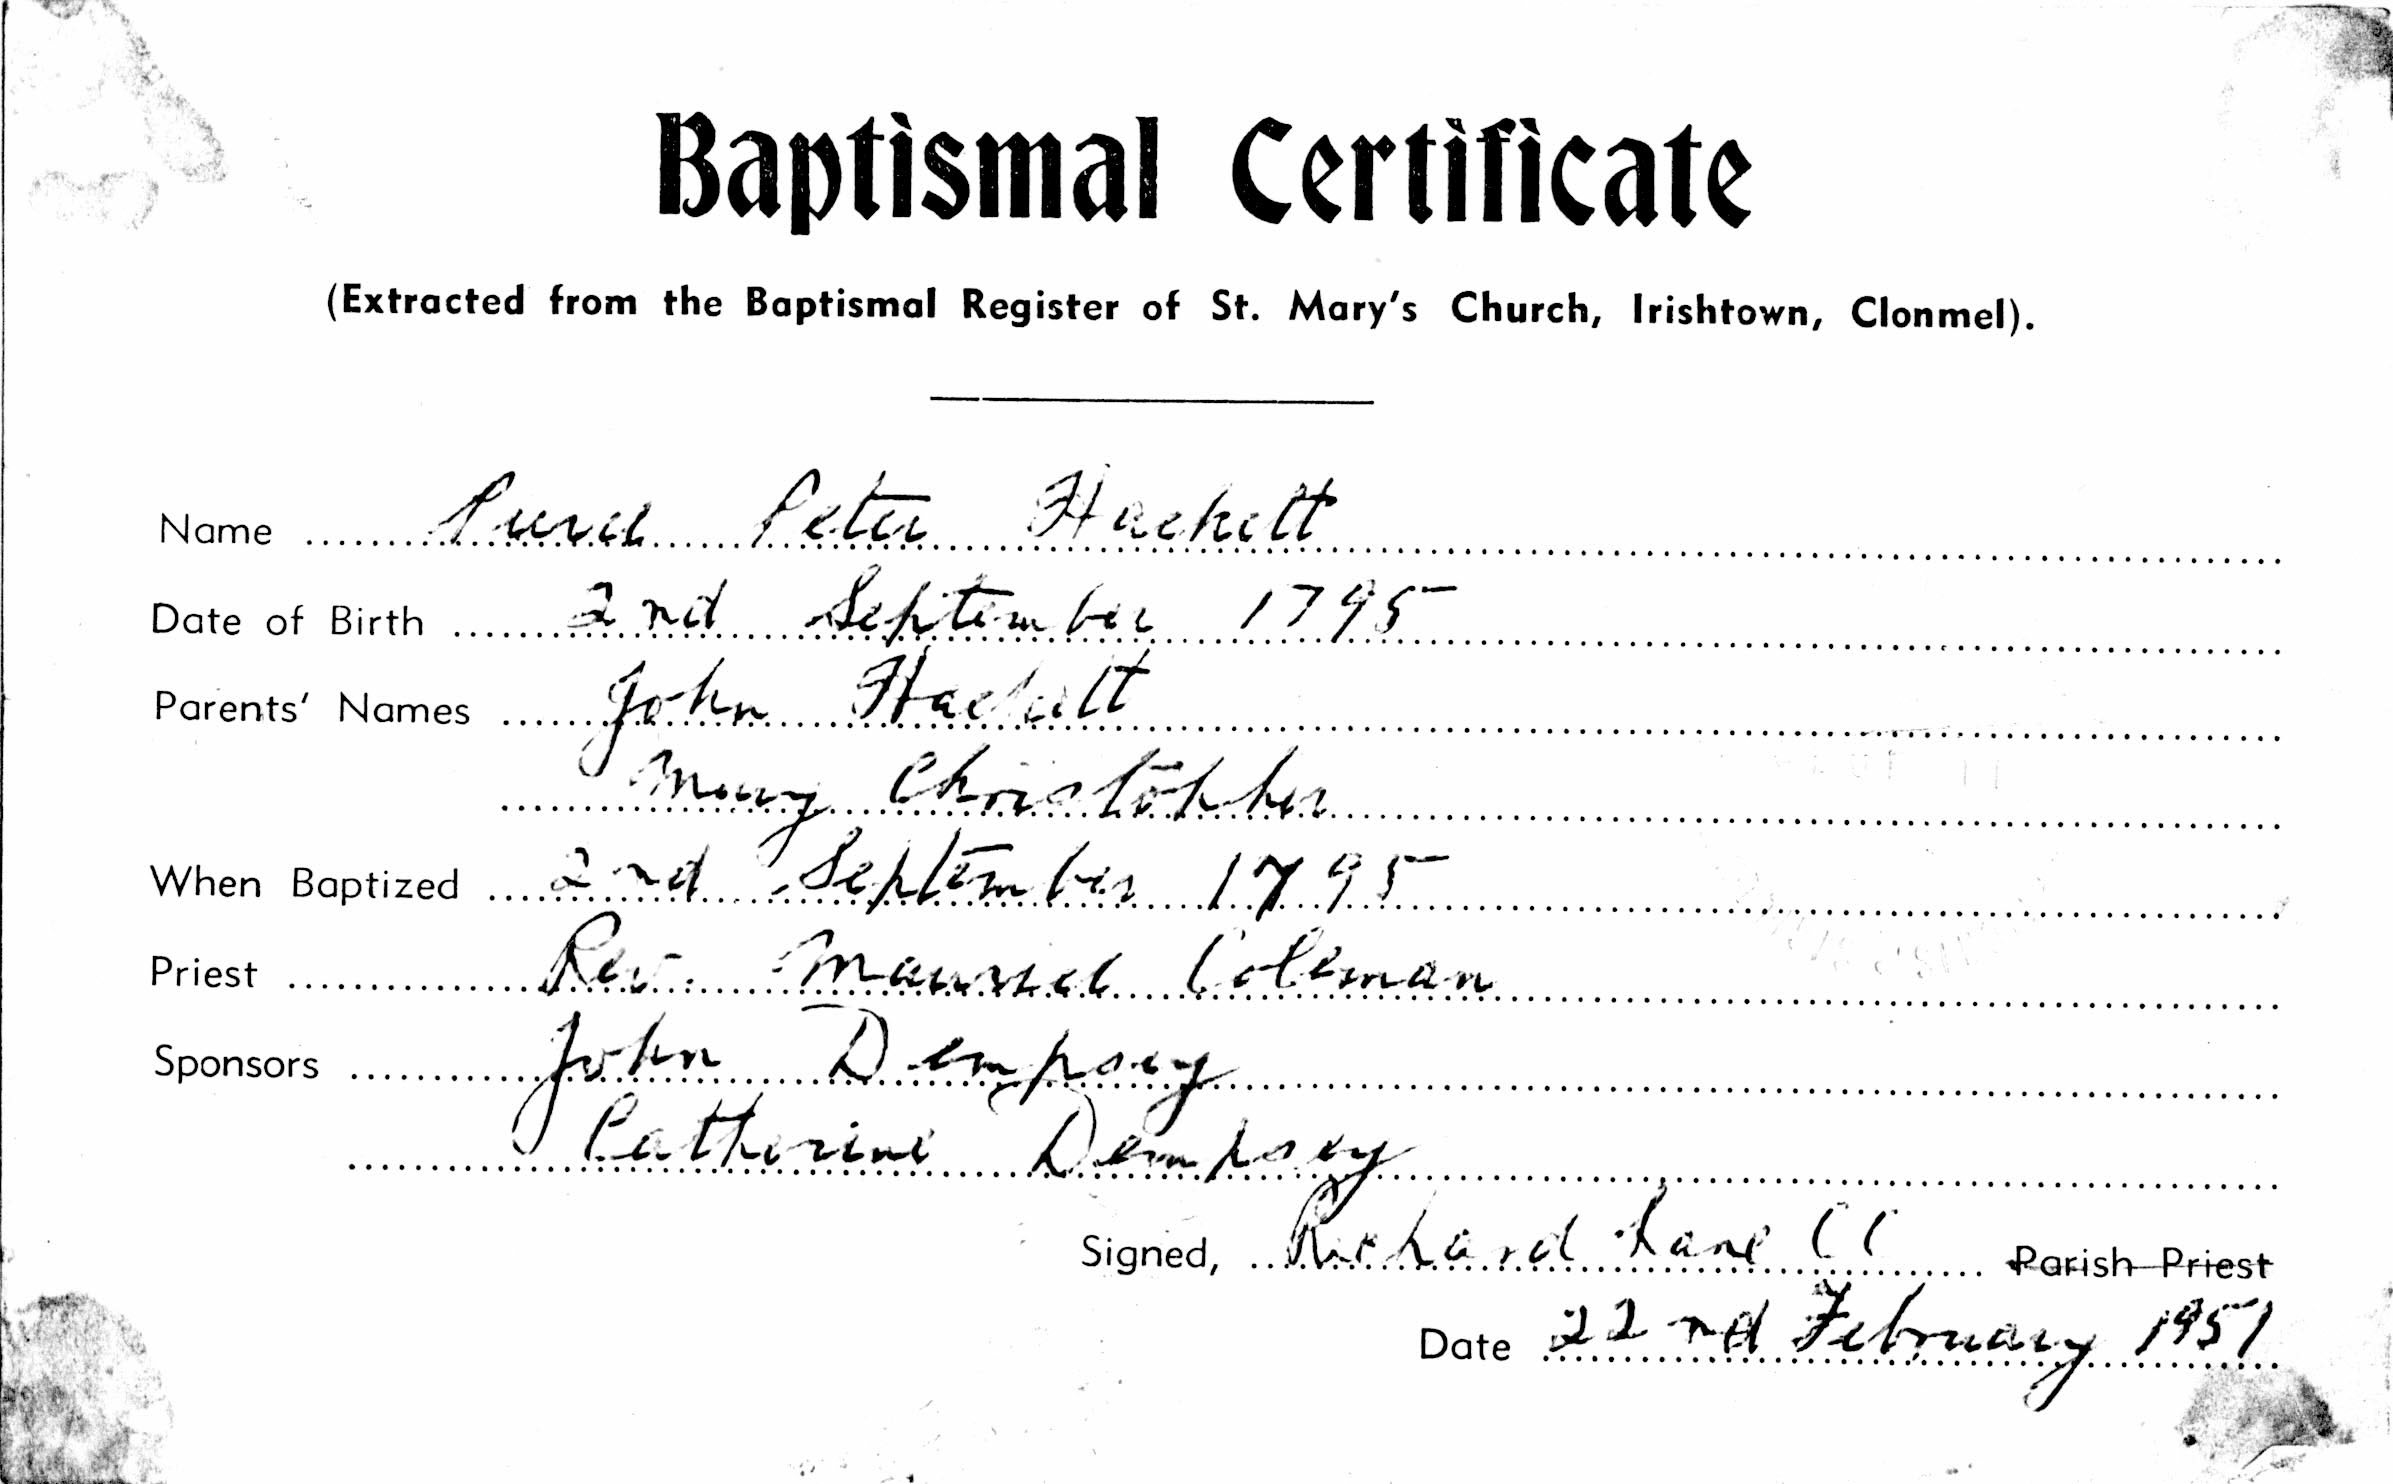 Baptismal Certificate
(Extracted from the Baptismal Register of St. Mary's Church, Irishtown, Clonmel).
Name Pierce Peter Hackett
Date of Birth 2nd September 1795
Parents' Names John Hackett
Mary Christopher
When Baptized 2nd September 1795
Priest Rev. Maurice Coleman
Sponsors John Dempsey
Catherine Dempsey
Signed, Richard Lane CC Parish Priest
Date 22nd February 1951